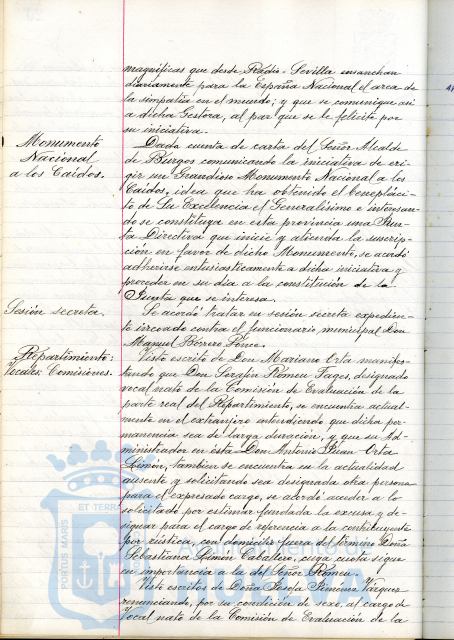 magníficas que desde Radio-Sevilla ensanchan
diariamente para la España Nacional el area de
la simpatía en el mundo; y que se comunique asi
a dicha Gestora, al par que se le felicite por
su iniciativa.
Monumento
Nacional
a los Caidos.
Dada cuenta de carta del Señor Alcalde
de Burgos comunicando la iniciativa de eri-
gir un Grandioso Monumento Nacional a los
Caidos, idea que ha obtenido el beneplaci-
to de Su Excelencia el Generalísimo e interesan-
do se constituya en esta provincia una Jun-
ta Directiva que inicie y atienda la suscrip-
ción en favor de dicho Monumento, se acordó
adherirse entusiasticamente a dicha iniciativa y
proceder en su dia a la constitución de la
Junta que se interesa.
Sesión secreta.
Se acordó tratar en sesión secreta expedien-
te incoado contra el funcionario municipal Don
Manuel Borrero Ponce.
Repartimiento:
Vocales: Comisiones.
Visto escrito de Don Mariano Orta manifes-
tando que Don Serafin Romeu Fages, designado
vocal nato de la Comisión de Evaluación de la
parte real del Repartimiento, se encuentra actual-
mente en el extranjero entendiendo que dicha per-
manencia sea de larga duración, y que su Ad-
ministrador en esta Don Antonio Juan Orta
Limon, tambien se encuentra en la actualidad
ausente y solicitando sea designada otra persona
para el expresado cargo, se acordó acceder a lo
solicitado por estimar fundada la excusa y de-
signar para el cargo de referencia a la contribuyente
por rústica, con domicilio fuera del término Doña
Sebastiana Limon Caballero, cuya cuota sigue
en importancia a la del Señor Romeu.
Visto escritos de Doña Josefa Jimenez Vazquez
renunciando, por su condición de sexo, al cargo de
vocal nato de la Comisión de Evaluación de la
ET TERRA
PORTUS MARIS